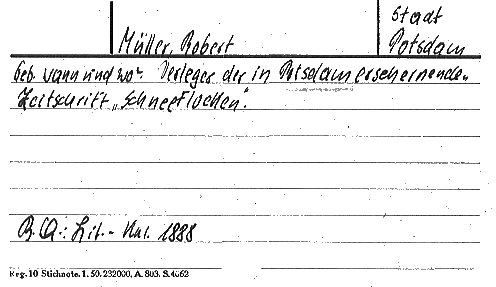 Stadt
Müller, Robert Potsdam
Geb. wann und wo? Verleger der in Potsdam erscheinenden
Zeitschrift „Schneeflocken".
B.Q.: Lit.-Kal. 1888
Erg. 10 Stichnote. 1. 50. 232000. A. 803. S. 4662